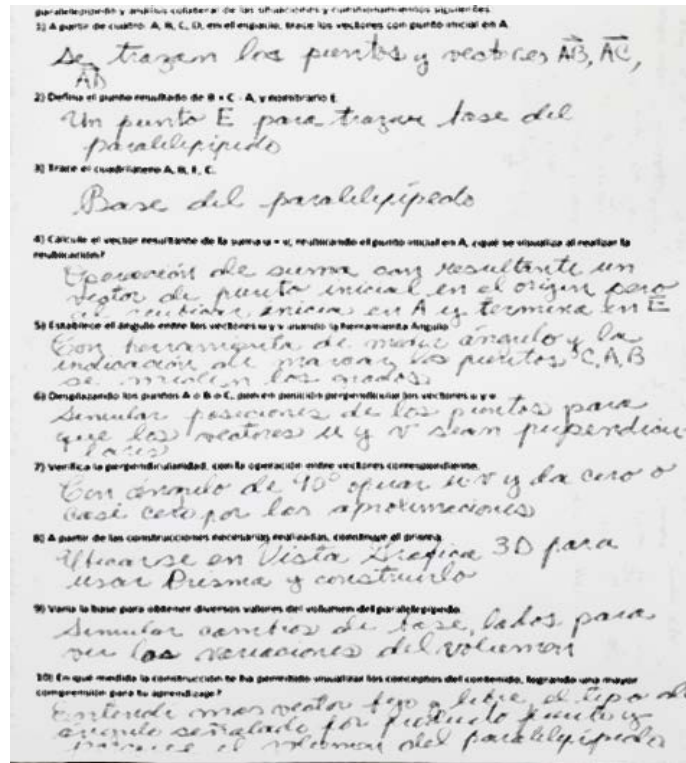 paralelepípedo y análisis colateral de las situaciones y cuestionamientos siguientes.
1) A partir de cuatro: A, B, C, D, en el espacio, trace los vectores con punto inicial en A.
Se trazan los puntos y vectores AB, AC,
AD
2) Defina el punto resultado de B + C - A, y nombrarlo E.
Un punto E para trazar base del
paralelepípedo
3) Trace el cuadrilátero A, B, E, C.
Base del paralelepípedo
4) Calcule el vector resultante de la suma u + v, reubicando el punto inicial en A, ¿qué se visualiza al realizar la
reubicación?
Operación de suma con resultante un
vector de punto inicial en el origen pero
al reubicar inicia en A y termina en E
5) Establece el ángulo entre los vectores u y v usando la herramienta Ángulo
Con herramienta de medir ángulo y la
indicación de marcar los puntos C, A, B
se miden los grados
6) Desplazando los puntos A o B o C, pon en posición perpendicular los vectores u y v
Simular posiciones de los puntos para
que los vectores u y v sean perpendicu
lares
7) Verifica la perpendicularidad, con la operación entre vectores correspondiente.
Con ángulo de 90° operar u v y da cero o
casi cero por las aproximaciones
8) A partir de las construcciones necesarias realizadas, construye el prisma
Ubicarse en Vista Grafica 3D para
usar Prisma y construirlo
9) Varía la base para obtener diversos valores del volumen del paralelepípedo.
Simular cambios de base, lados para
ver las variaciones del volumen
10) En qué medida la construcción te ha permitido visualizar los conceptos del contenido, logrando una mayor
comprensión para tu aprendizaje?
Entendi mas vector fijo y libre, el tipo de
ángulo señalado por producto punto y
el volumen del paralelepípedo